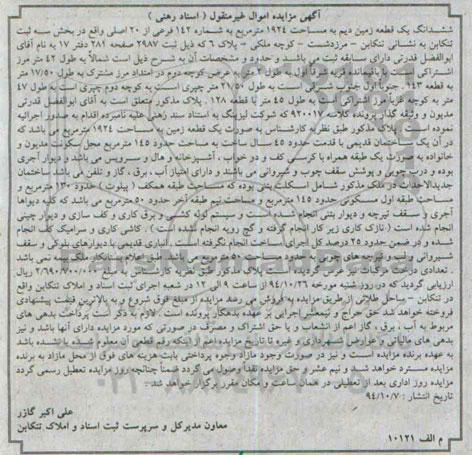 آگهی مزایده اموال غیرمنقول ( اسناد رهنی )
ششدانگ یک قطعه زمین دیم به مساحت ۱۹۲۴ مترمربع به شماره ۱۴۲ فرعی از ۲۰ اصلی واقع در بخش سه ثبت
تنکابن به نشانی تنکابن - مرزدشت - کوچه ملکی - پلاک ۶ که ذیل ثبت ۲۹۸۷ صفحه ۲۸۱ دفتر ۱۷ به نام آقای
ابوالفضل قدرتی دارای سابقه ثبت می باشد و حدود و مشخصات آن به شرح ذیل است شمالا به طول ۴۲ متر مرز
اشتراکی است با باقیمانده شرقا اول به طول متر به عرض کوچه دوم در امتداد مرز مشترک به طول ۱۷/۵۰ متر
به قطعه ۱۴۳ جنوبا اول جنوب شرقی است به طول ۲۱/۵۰ متر چپری است به کوچه دوم چپری است به طول ۴۷
متر به کوچه غربا مرز اشتراکی است به طول ۴۵ متر با قطعه ۱۲۸ . پلاک مذکور متعلق است به آقای ابوالفضل قدرتی
مدیون و وثیقه گذار پرونده کلاسه ۹۲۰۰۱۷ که شرکت لیزینگ به استناد سند رهنی علیه نامبرده اقدام به صدور اجرائیه
نموده است . پلاک مذکور طبق نظریه کارشناس به صورت یک قطعه زمین به مساحت ۱۹۲۴ مترمربع می باشد که
در آن یک ساختمان قدیمی با قدمت حدود ۴۵ سال ساخت به مساحت حدود ۱۴۵ مترمربع محل سکونت مدیون و
خانواده به صورت یک طبقه همراه با کرسی کف و دو خواب ، آشپزخانه و هال و سرویس می باشد و دیوار آجری
بوده و درب چوبی و پوشش سقف چوب و شیروانی می باشند و دارای امتیاز آب ، برق ، گاز و تلفن می باشد ساختمان
جدیدالاحداث در ملک مذکور شامل اسکلت بتنی بوده که مساحت طبقه همکف ( پیلوت ) حدود ۱۳۰ مترمربع و
مساحت طبقه اول مسکونی حدود ۱۴۵ مترمربع و مساحت نیم طبقه آخر حدود ۵۰ مترمربع می باشد که کلیه دیوارها
آجری و سقف تیرچه و دیوار بتنی انجام شده است و سیستم لوله کشی و برق کاری و کف سازی و دیوار چینی
انجام شده است ( نازک کاری زیر کار انجام گرفته و گچ رویه انجام نشده است ) . کاشی کاری و سرامیک کف انجام
نشده و در ضمن حدود ۲۵ درصد کل اجرای ساخت انجام نگرفته است . انباری قدیمی با دیوارهای بلوکی و سقف
شیروانی درب و دریچه های چوبی به مساحت حدود ۵۰ مترمربع می باشد با اعلام مدیون ملک بیمه نمی باشد
. تعدادی درخت مرکبات نیز غرس گردیده است . پلاک مذکور طبق نظریه کارشناس به مبلغ ۲/۶۹۰/۷۰۰/۰۰۰ ریال
ارزیابی گردید که در روز شنبه مورخه ۹۴/۱۰/۲۶ از ساعت ۹ الی ۱۲ در شعبه اجرای ثبت اسناد و املاک تنکابن واقع
در تنکابن - ساحل طلائی از طریق مزایده به فروش می رسد مزایده از مبلغ فوق شروع و به بالاترین قیمت پیشنهادی
فروخته خواهد شد حق حراج و نیمعشر اجرایی بر عهده بدهکار پرونده است . لازم به ذکر است پرداخت بدهی های
مربوط به آب ، برق ، گاز اعم از انشعاب و یا حق اشتراک و مصرف در صورتی که مورد مزایده دارای آنها باشد و نیز
بدهی های مالیاتی و عوارض شهرداری و غیره تا تاریخ مزایده اعم از اینکه رقم قطعی آن معلوم شده یا نشده باشد
به عهده برنده مزایده است و نیز در صورت وجود مازاد وجوه پرداختی بابت هزینه های فوق از محل مازاد به برنده
مزایده مسترد خواهد شد و نیم عشر و حق مزایده نقدا وصول می گردد ضمنا چنانچه روز مزایده تعطیل رسمی گردد
مزایده روز اداری بعد از تعطیلی در همان ساعت و مکان مقرر برگزار خواهد شد .
تاریخ انتشار : ۹۴/۱۰/۷
علی اکبر گازر
معاون مدیرکل و سرپرست ثبت اسناد و املاک تنکابن
م الف ۱۰۱۲۱